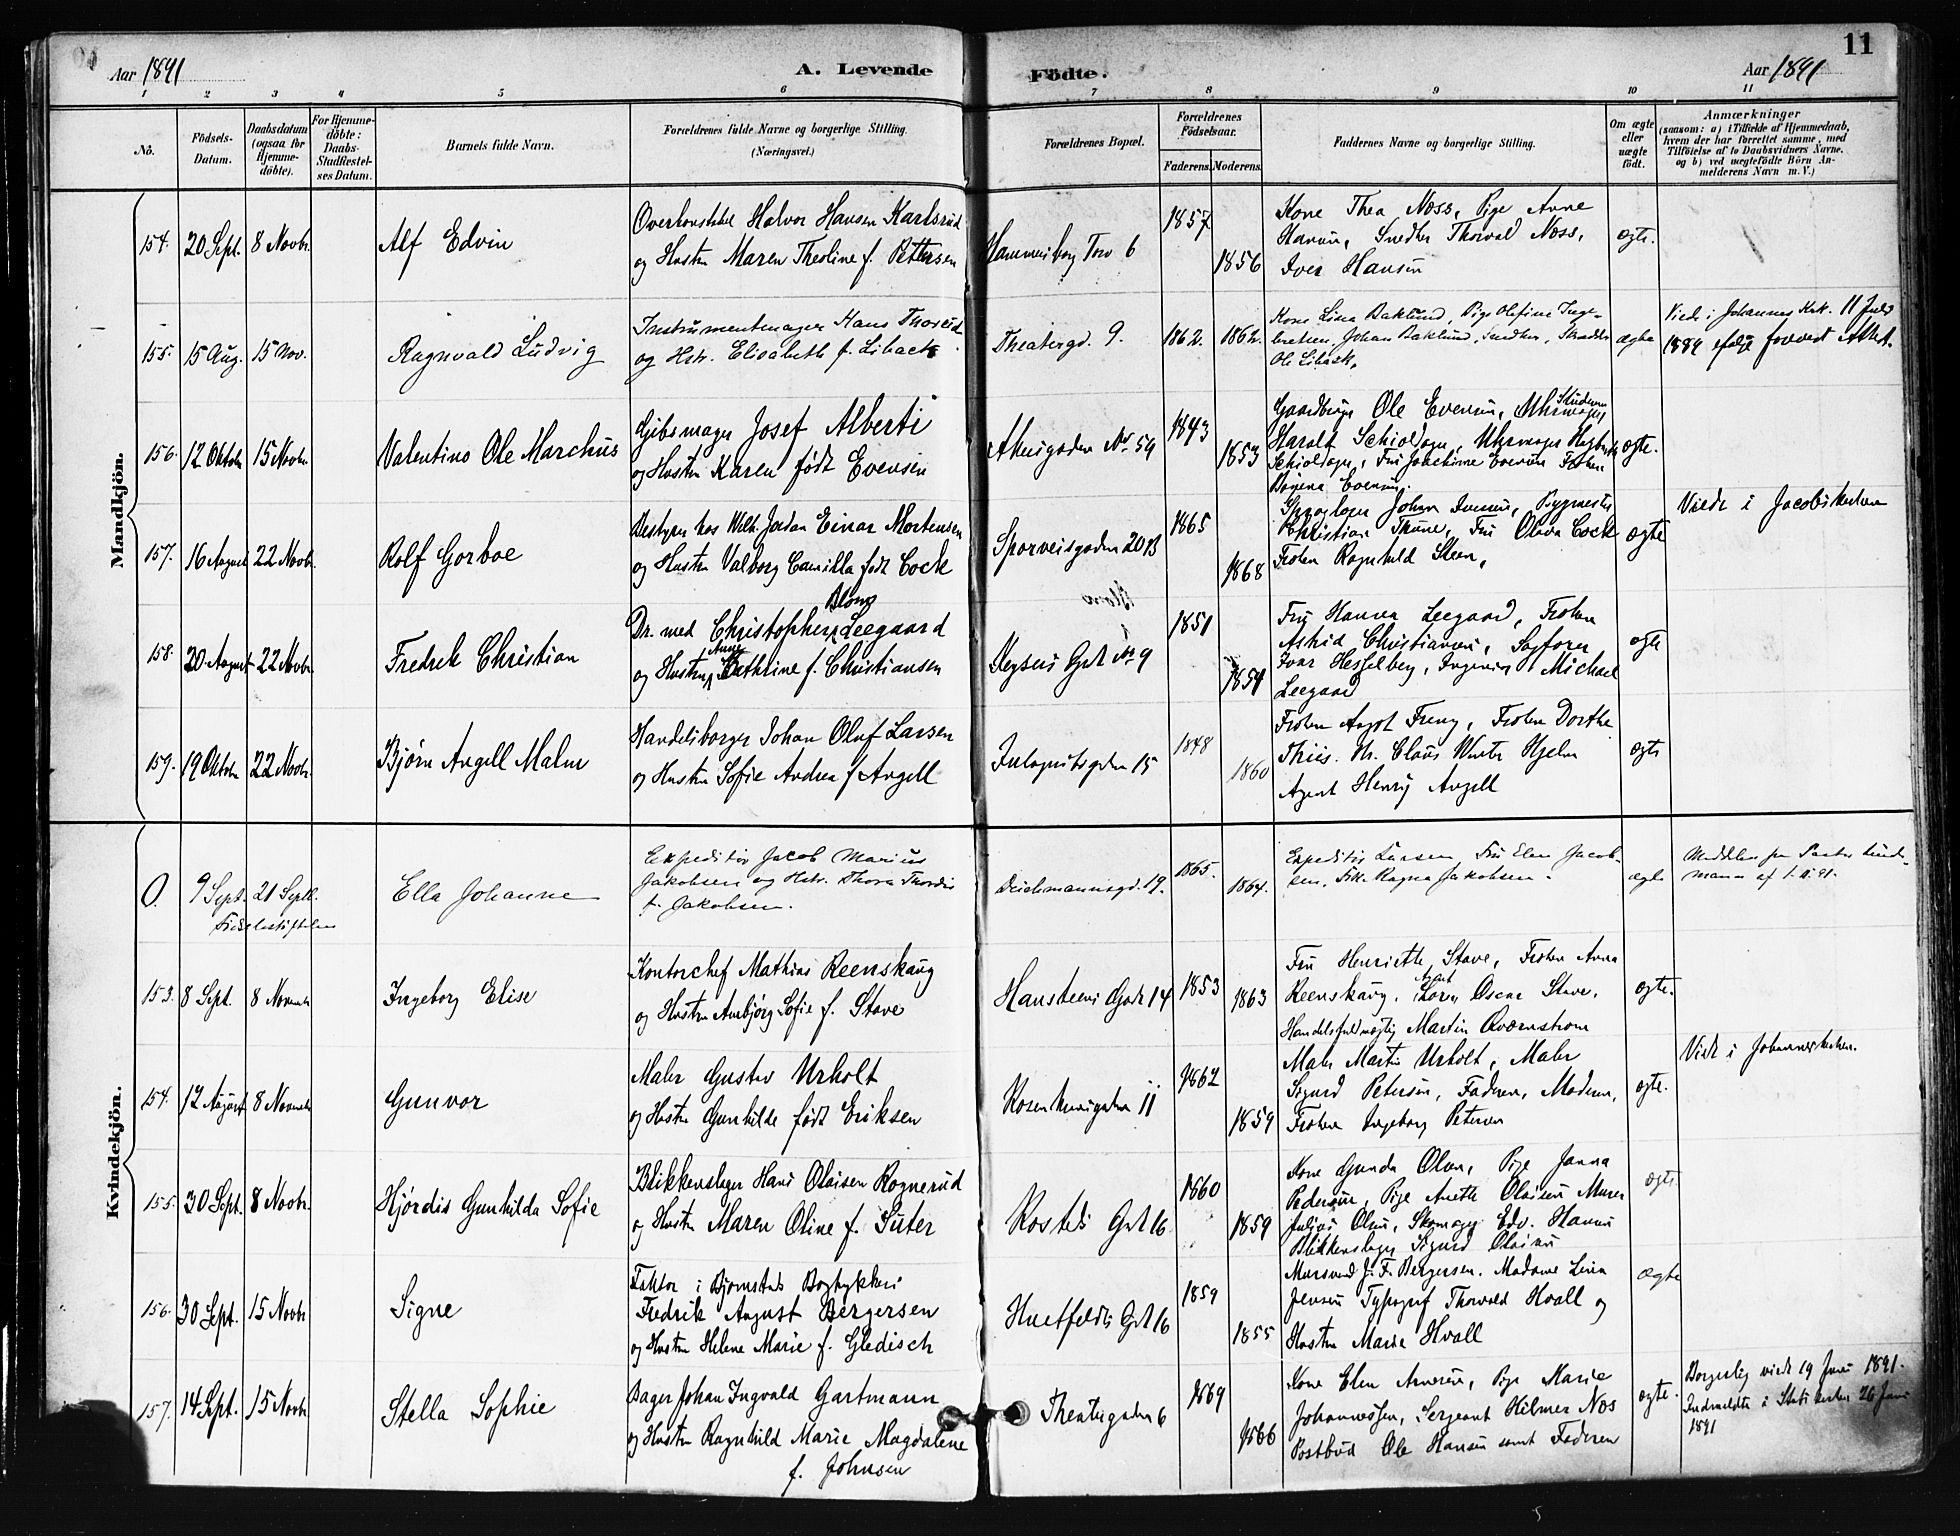 11
Aar 1891
A. Levende
Födte.
Aar 1891
1 2 3 4 5 6 7 8 9 10 11
No.
Födsels-
Datum.
Daabsdatum
(ogsaa for
Hjemme-
döbte).
For Hjemme-
döbte:
Daabs-
Stadfæstel-
ses Datum.
Barnets fulde Navn.
Forældrenes fulde Navne og borgerlige Stilling.
(Næringsvei.)
Forældrenes Bopæl.
Forældrenes
Födselsaar.
Faderens.
Moderens.
Faddernes Navne og borgerlige Stilling.
Om ægte
eller
uægte
födt.
Anmærkninger
(saasom: a) i Tilfælde af Hjemmedaab,
hvem der har forrettet samme, med
Tilföielse af to Daabsvidners Navne.
og b) ved uægtefödte Börn An-
melderens Navn m. V.)
Mandkjön.
154. 20 Sept. 8 Novbr.
Alf Edvin
Overkonstabel Halvor Hansen Karlsrud
og Hustru Maren Theoline f. Pettersen
Hammersborg Torv 6
1857
1856
Kone Thea Næss, Pige Anne
Hansen, Snedker Thorvald Næss,
Iver Hansen
ægte.
155. 15 Aug. 15 Nov.
Ragnvald Ludvig
Instrumentmager Hans Thorud
og Hstr. Elisabeth f. Liback
Theatergd. 9.
1862.
1862.
Kone Lina Baklund, Pige Olefine Inge-
bretsen, Johan Baklund, Snedker, Skrædder
Ole Liback.
ægte
Viede i Johannes Kirk. 11 Juli
1889 ifølge forevist Attest.
156. 12 Oktober 15 Novbr.
Valentino Ole Marchus
Gibsmager Josef Alberti
og Hustru Karen født Evensen
Akersgaden No 59
1843
1853
Gaardbruger Ole Evensen, Student
Harald Schioldager, Uhrmager
Schioldager, Fru Evensen Frøken
Evensen.
ægte.
157. 16 August 22 Novbr.
Rolf Gorboe
Bestyrer hos Wilh. Jordan Einar Mortensen
og Hustru Valborg Camilla født Cock
Sporveisgaden 20 B
1865
1868
Johan Iversen, Bygmester
Christian Thune, Fru Olava Cock
Frøken Ragnhild Steen,
ægte
Viede i Jacobskirken
158. 20 August 22 Novbr.
Fredrik Christian
Blom
Dr. med Christopher Leegaard
Anne
og Hustru Cathrine f. Christiansen
Keysers Gade No 9
1851
1854
Fru Hanna Leegaard, Frøken
Astrid Christiansen, Sagfører
Ivar Hesselberg, Ingeniør Michael
Leegaard
ægte
159. 19 Oktober 22 Novbr.
Bjørn Angell Malm
Handelsborger Johan Oluf Larsen
og Hustru Sofie Andrea f. Angell
Industrigaden 15
1848
1860
Frøken Aagot Freng, Frøken Dorthe
Thiis. Hr. Claus Winter Hjelm
Agent Henry Angell
ægte
Kvindekjön.
0. 9 Sept. 21 Septb.
Fødselsstiftelsen
Ella Johanne
Expeditör Jacob Marius
Jakobsen og Hstr. Thora Thordis
f. Jakobsen.
Deichmannsgd. 19.
1865.
1864.
Expeditör Larsen, Fru Elen Jacob-
sen, Frk. Ragna Jakobsen.
ægte
Meddelt fra Pastor Lind-
mann
153. 8 Sept. 8 November
Ingeborg Elise
Kontorchef Mathias Reenskaug
og Hustru Aasbjørg Sofie f. Stave
Hansteens Gade 14
1853
1863
Fru Henriette Stave, Frøken Anna
Reenskaug, Agent Oscar Stave,
Handelsfuldmægtig Martin Qværnstrøm
ægte.
154. 12 August 8 November
Gunvor
Maler Gustav Urholt
og Hustru Gunhilde født Eriksen
Rosenkransgaden 11
1862
1859
Maler Martin Urholt, Maler
Sigurd Petersen, Faderen, Moderen,
Frøken Ingeborg Petersen
ægte.
Viede i Johanneskirken.
155. 30 Sept. 8 Novbr
Hjørdis Gunhilda Sofie
Blikkenslager Hans Olaisen Rognerud
og Hustru Maren Oline f. Suter
Rosteds Gade 16
1860
1859
Kone Gunda Olsen, Pige Janna
Pedersen, Pige Anette Olaisen Murer
Julius Olsen, Skomager Edv. Hansen
Blikkenslager Sigurd Olaisen
ægte
156. 30 Sept. 15 Novbr
Signe
Faktor i Bjørnstads Bogtrykkeri
Fredrik August Bergersen
og Hustru Helene Marie f. Gledisch
Huitfeldts Gade 16
1859
1855
Mursvend J. F. Bergersen. Madame Lina
Jensen Typograf Thorvald Hvall og
Hustru Marie Hvall
ægte
157. 14 Sept. 15 Novbr
Stella Sophie
Bager Johan Ingvald Gartmann
og Hustru Ragnhild Marie Magdalene
f. Johnsen
Theatergaden 6
1869
1866
Kone Elen Arnesen, Pige Marie
Johannessen, Sergeant Hilmer Næs
Postbud Ole Hansen samt Faderen
ægte.
Borgerlig viede 19 Juni 1891.
Indmeldte i Statskirken 26 Juni
1891